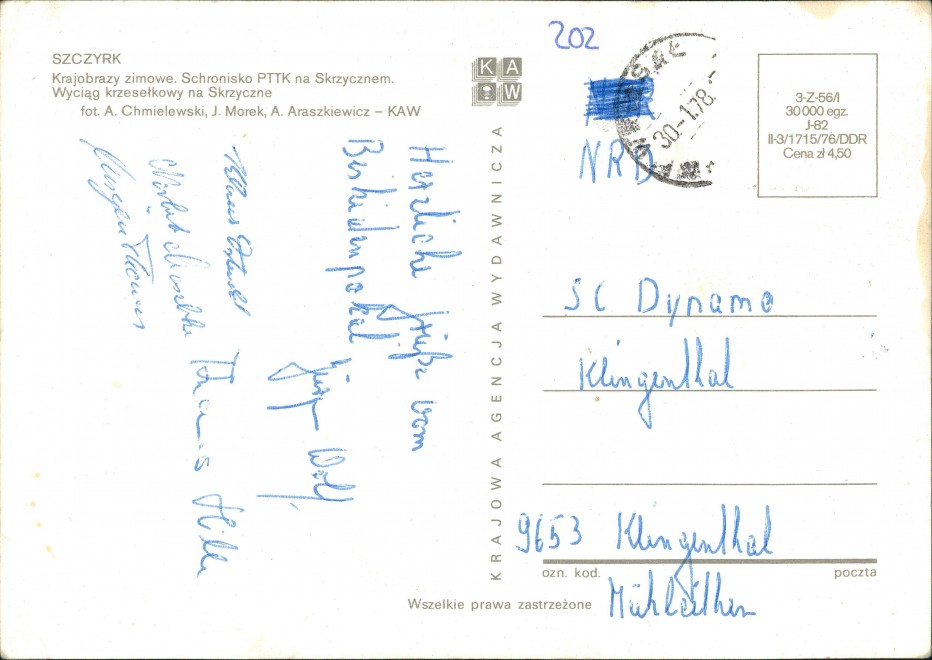 SZCZYRK
Krajobrazy zimowe. Schronisko PTTK na Skrzycznem.
Wyciąg krzesełkowy na Skrzyczne
fot. A. Chmielewski, J. Morek, A. Araszkiewicz – KAW
K A
W
202
30-1.78.
NRD
3-Z-56/I
30 000 egz.
J-82
II-3/1715/76/DDR
Cena zł 4,50
Herzliche Grüße vom
Beskidenpokal
Wolf
Klaus
Thomas
KRAJOWA AGENCJA WYDAWNICZA
SC Dynamo
Klingenthal
9653 Klingenthal
ozn. kod. poczta
Mühlleithen
Wszelkie prawa zastrzeżone